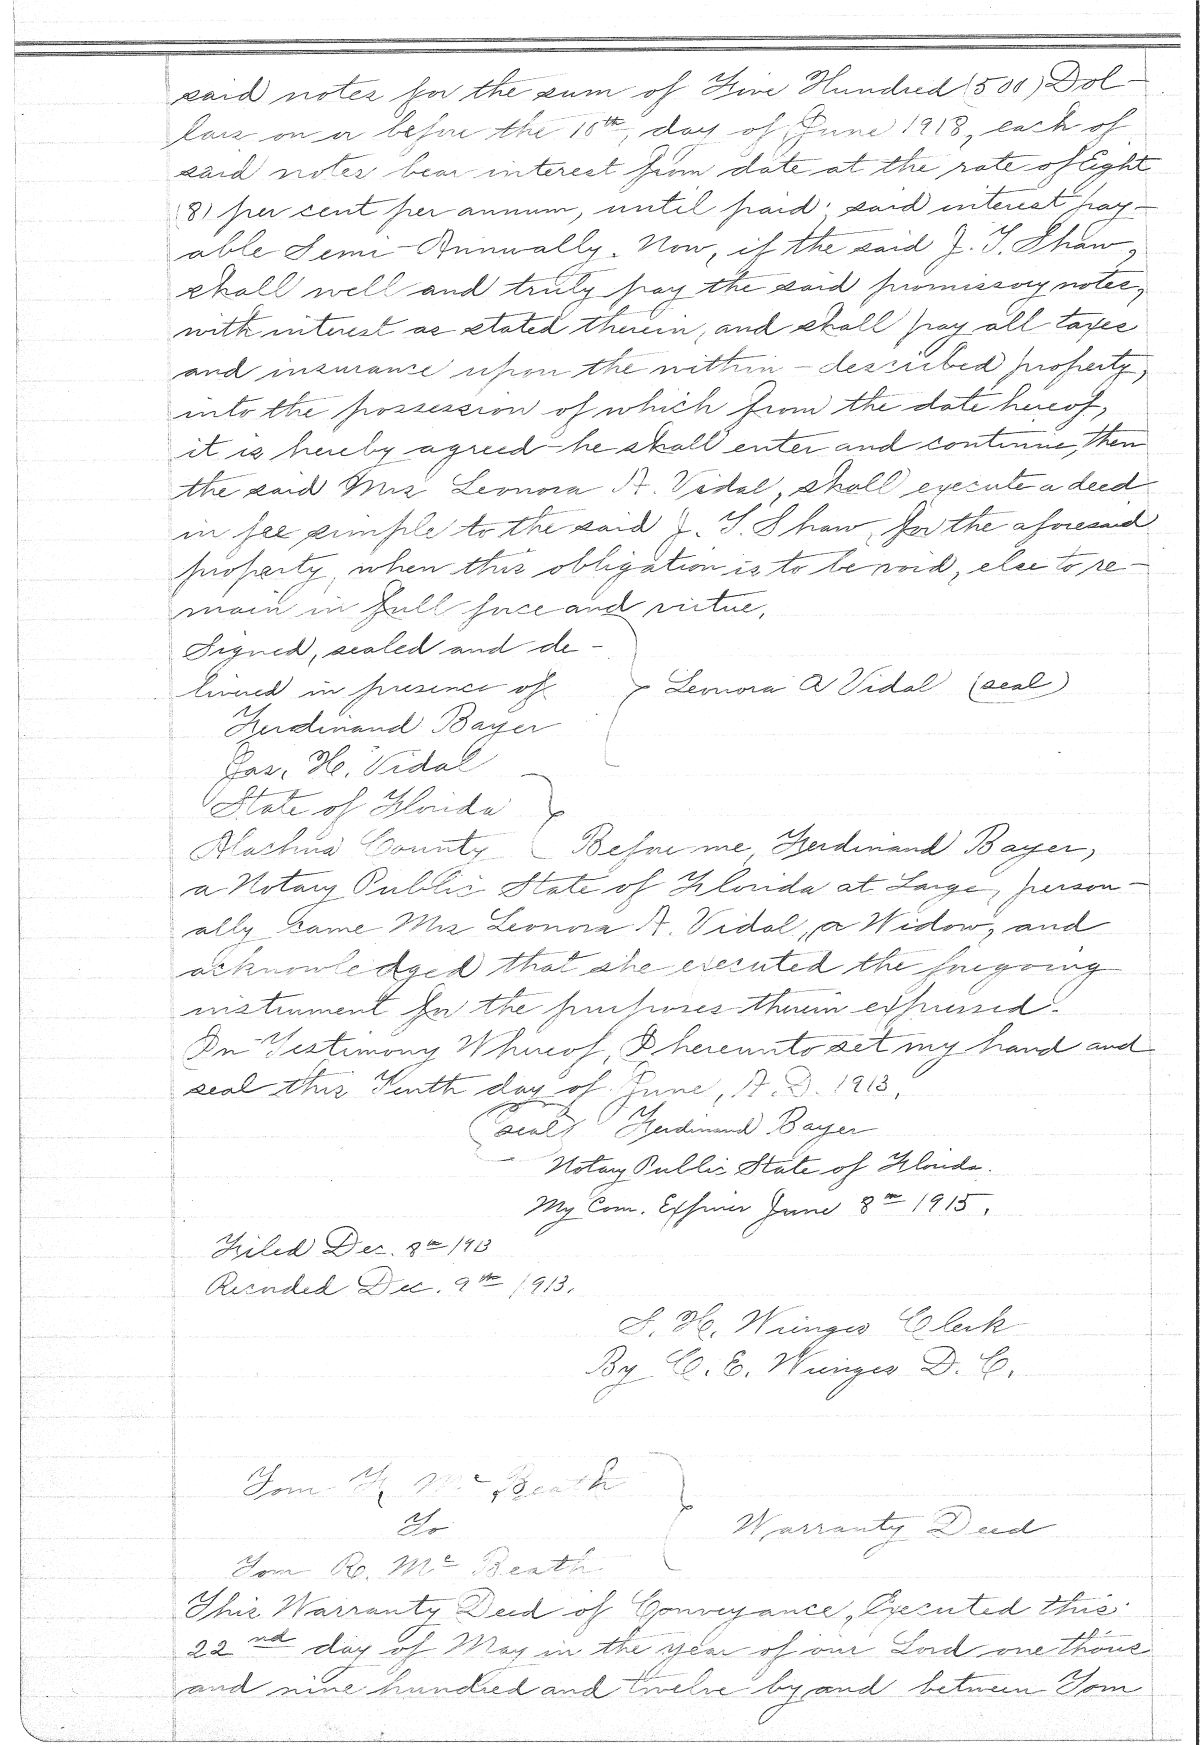 said notes for the sum of Five Hundred (500) Dol-
lars on or before the 10th, day of June 1918, each of
said notes bear interest from date at the rate of Eight
(8) per cent per annum, until paid; said interest pay-
able Semi-Annually. Now, if the said J. T. Shaw,
shall well and truly pay the said promissory notes,
with interest as stated therein, and shall pay all taxes
and insurance upon the within-described property,
into the possession of which from the date hereof,
it is hereby agreed he shall enter and continue, then
the said Mrs Leonora A. Vidal, shall execute a deed
in fee simple to the said J. T. Shaw, for the aforesaid
property, when this obligation is to be void, else to re-
main in full force and virtue.
Signed, sealed and de-
livered in presence of } Leonora A Vidal (seal)
Ferdinand Bayer
Jas. H. Vidal
State of Florida }
Alachua County { Before me, Ferdinand Bayer,
a Notary Public State of Florida at Large, person-
ally came Mrs Leonora A. Vidal, a Widow, and
acknowledged that she executed the foregoing
instrument for the purposes therein expressed.
In Testimony Whereof, I hereunto set my hand and
seal this Tenth day of June, A. D. 1913.
(seal) Ferdinand Bayer
Notary Public State of Florida.
My Com. Expires June 8th 1915.
Filed Dec. 8th 1913
Recorded Dec. 9th 1913.
S. H. Wienges Clerk
By C. E. Wienges D. C.
Tom F. Mc Beath
To } Warranty Deed
Tom R. Mc Beath
This Warranty Deed of Conveyance, Executed this
22nd day of May in the year of our Lord one thous
and nine hundred and twelve by and between Tom